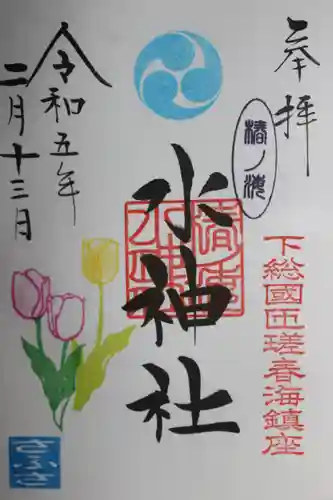 奉拝
椿ノ海
下総國匝瑳春海鎮座
水神社
令和五年
二月十三日
さふさ